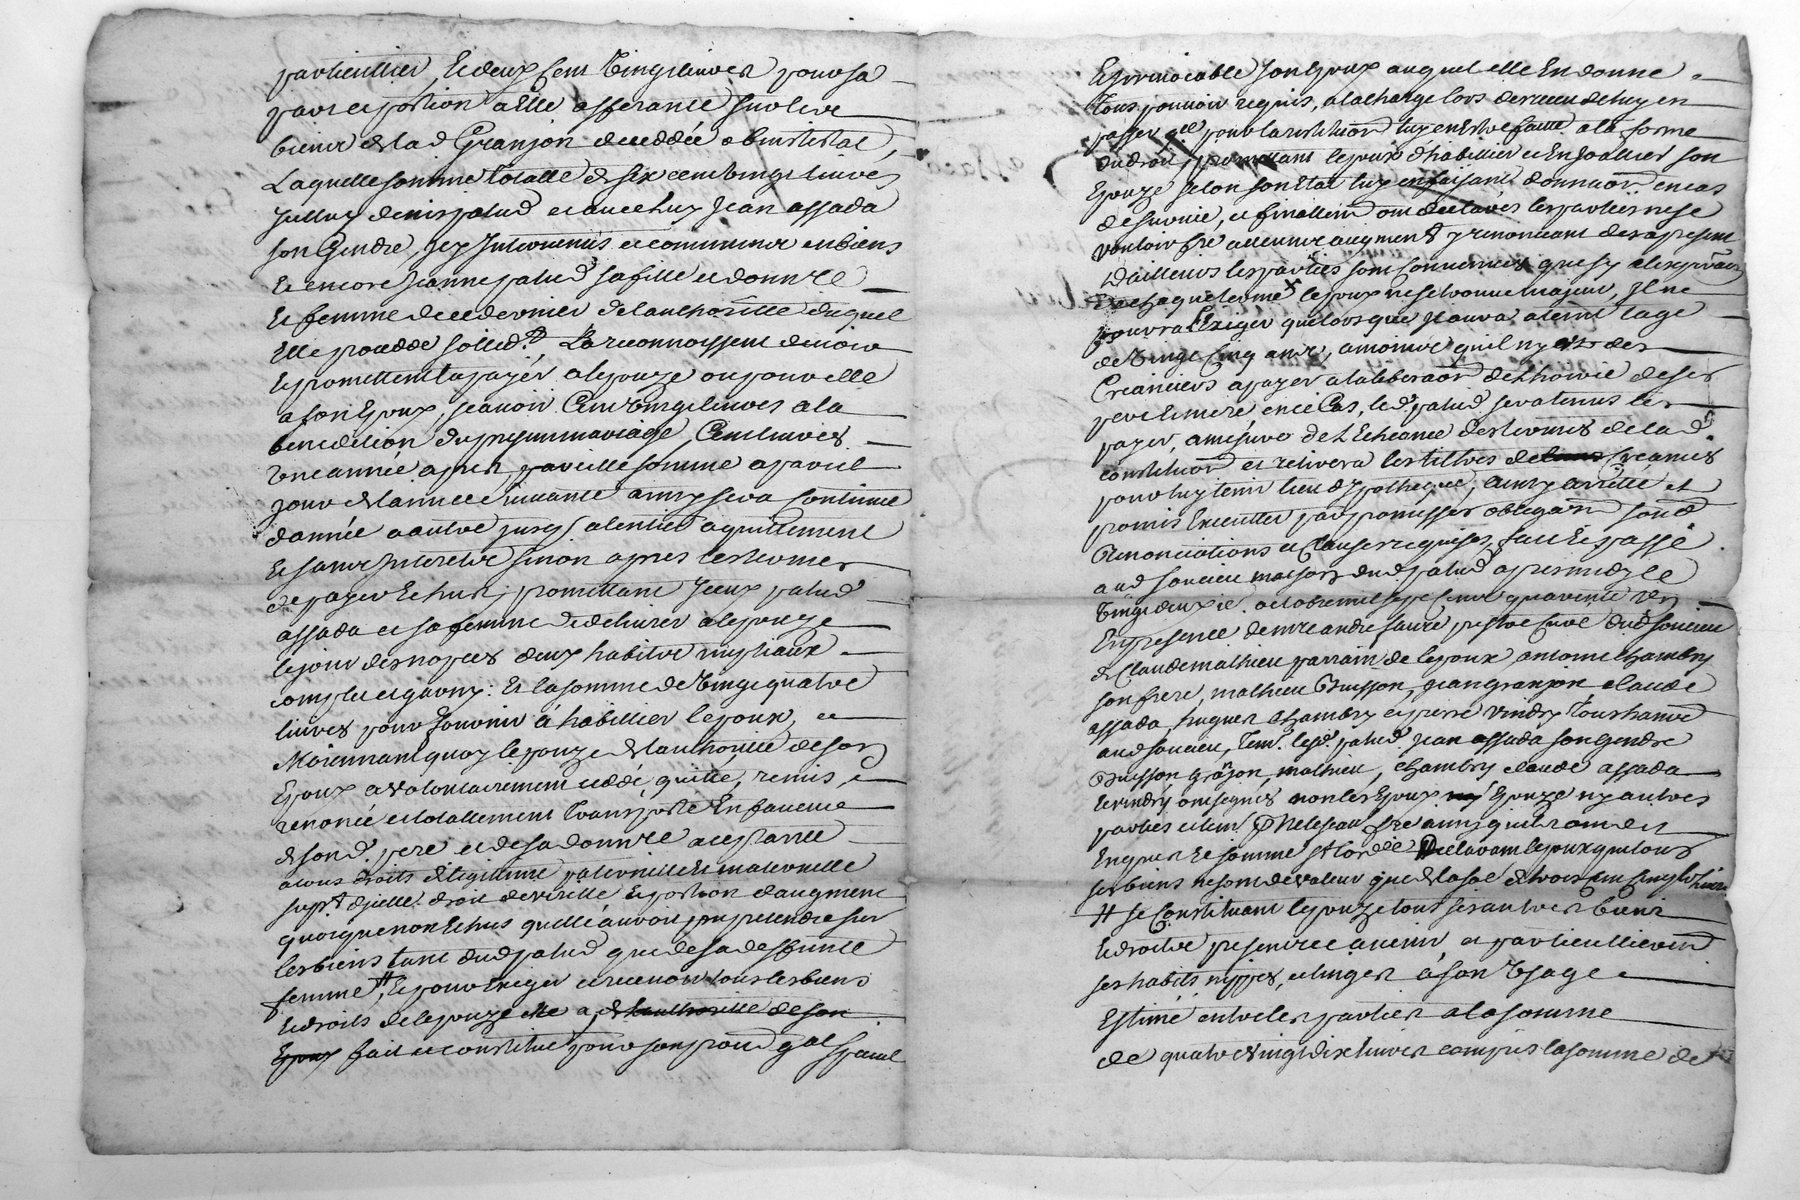 particullier, et deux cent vingt livres pour sa
part et portion a elle afferante sur les
biens de lad Granjon deceddée abintestat,
Laquelle somme totalle de six cent vingt livres
Jcelluy denis palud et avec luy Jean assada
son gendre, jcy Intervenus et communs en biens
et encore Jeanne palud sa fille et donn.re
et femme de ce dernier de lauthoritte duquel
Elle proddde sollid.t La reconnoissent devoir
et promettent payer a lepouze ou pour elle
a son Epoux, scavoir Cent vingt livres a la
benediction du present mariage, Cent livres
une année apres pareille somme a pareil
jour de lannee suivante ainsy sera continué
dannée a autre jusq. a lentier aquittement
et sans Interets sinon apres les termes
de payer Echus; promettant Jceux palud
assada et sa femme de delivrer a lepouze
le jour des nopces deux habits nuptiaux
complet et garny: Et la somme de vingt quatre
livres pour fournir a habillier lepoux, et
Moiennant quoy lepouze de lauthoritté de son
Epoux a volontairement ceddé, quitté, remis,
renoncé et totallement transporté En faveur
de son d. pere et de sa donn.re aceptante
a tous droits de legitime paternelle et maternelle
suplt d'jcelle, droit de virille et portion d'augment
quoique non Echus quelle auroit pu pretendre sur
les biens tant dud palud que de sa deffunte
femme #, Et pour Exiger et recevoir tous les biens
et droits de lepouze elle a, de lauthoritté de son
Epoux fait et constitué pour son proc.r g.al special
Et irrevocable son Epoux auquel elle En donne
tous pouvoir requis, a la charge lors du receu de luy en
passer q.ce pour la restitution luy en Estre faitte a la forme
du droit, promettant lepoux d'habillier et Enjoallier son
Epouze selon son Etat luy en faisant donnaon. en cas
de survie, et finallem.t ont declarés les parties ne se
vouloir f.re aucuns augment y renoncant des a present
D'ailleurs les parties sont convenues que sy a lexpiraon
de chaque terme lepoux ne se trouve majeur, Jl ne
pourra Exiger que lors que Jl aura ateint lage
de vingt Cinq ans, a moins qu'il ny ait des
Creanciers a payer a la liberaon de Lhoirie de ses
pere et mere en ce Cas, led. palud sera tenus les
payer, a mesure de L Echeance des termes de lad.
constitution et retirera les tiltres de leurs Creances
pour luy tenir lieu d'ypotheque, ainsy arretté et
promis Executter par promisses obligaon soumd
Renonciations et Clauses requises, fait Et passé
aud soucieu maison dud palud apres midy le
vingt deuxie. octobre mil sept Cent quarante
En presence de mre andre faure pretre Curé dud soucieu
de Claude mathieu parrain de lepoux antoine chambry
son frere, mathieu Buisson, jean granjon claude
assada hugues chambry et pierre vindry tous hants
aud soucieu, tem. lesd. palud Jean assada son gendre
Buisson Grajon, mathieu, chambry claude assada
et vindry ont signés non les Epoux Epouze ny autres
parties et tem. p. ne le scavoir f.re ainsy quil ont dit
Enquis et sommé s. lordce Declarant lepoux que tous
ses biens ne sont de valeur que de la so.e de trois cent cinq.te livres
# se Constituant lepouze tous ses autres biens
et droits presents et a venir, et particullierem.t
ses habits, nippes, et linges a son usage
Estimé entre les parties a la somme
de quatre vingt dix livres compris la somme de